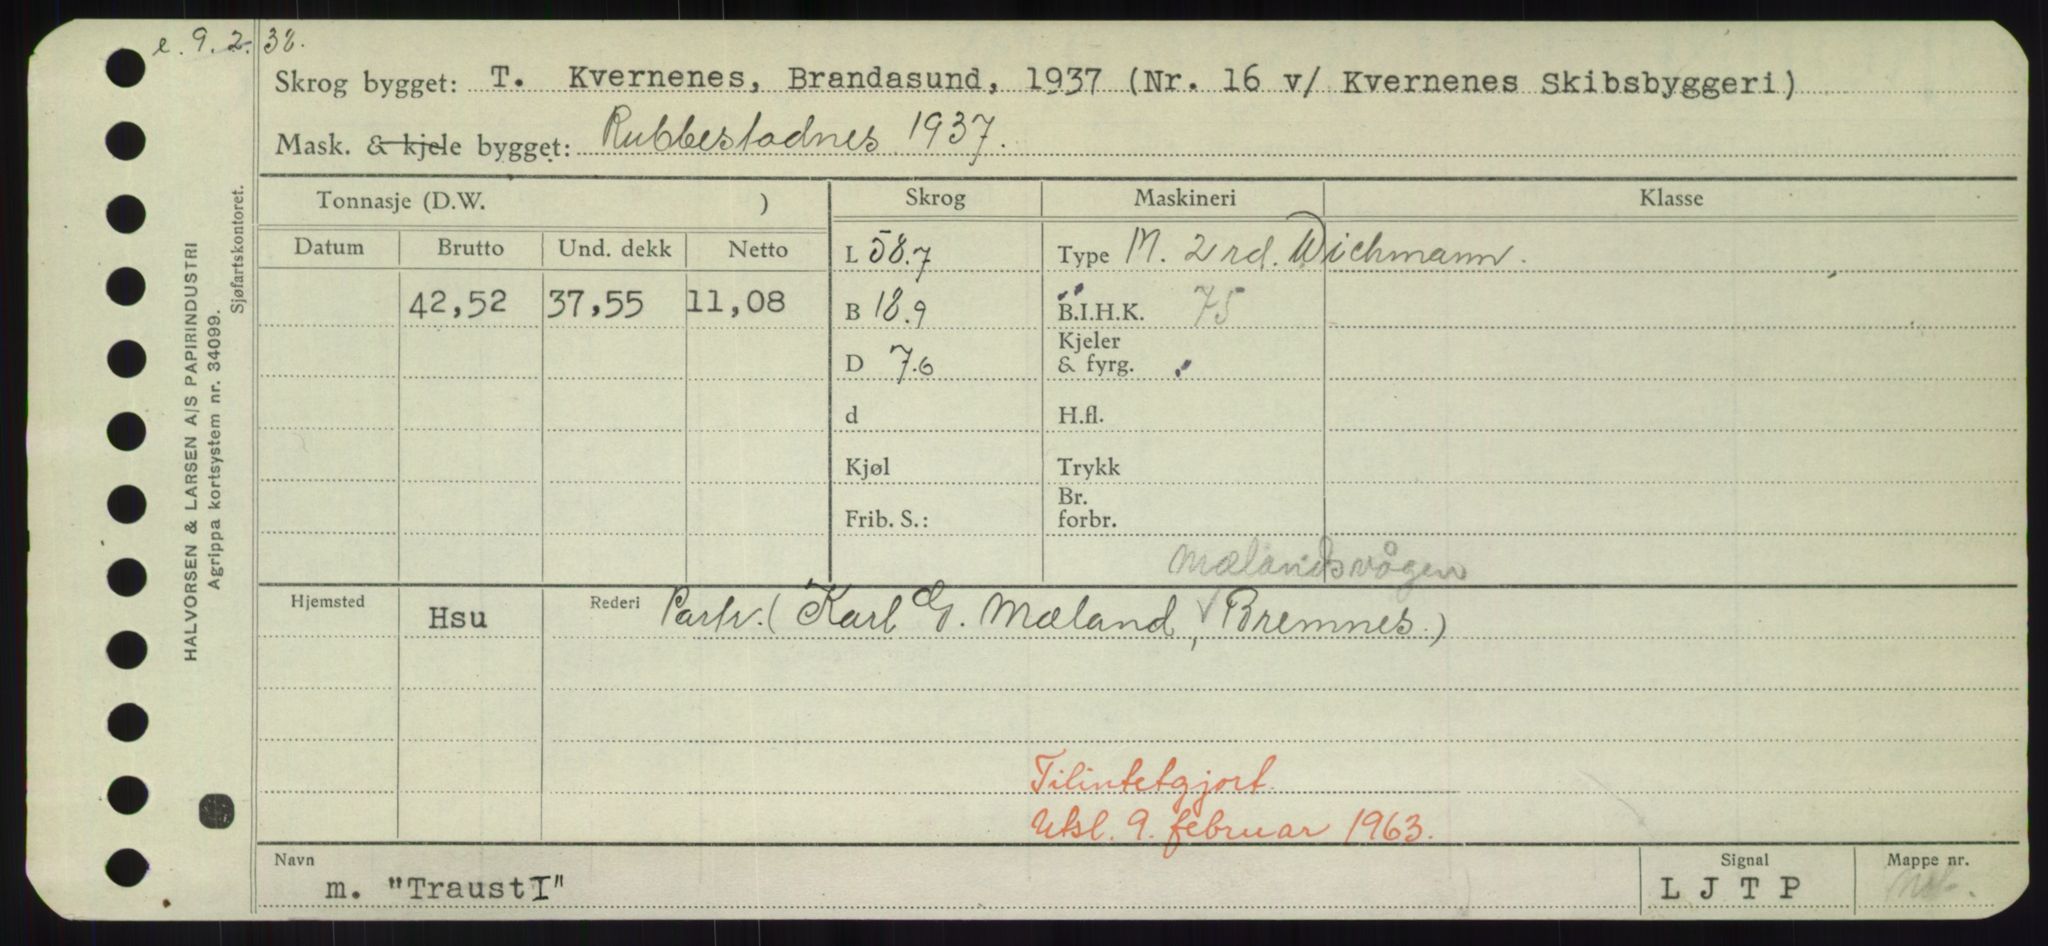 e. 9. 2. 38.
Skrog bygget: T. Kvernenes, Brandasund, 1937 (Nr. 16 v/ Kvernenes Skibsbyggeri)
Mask. & kjele bygget: Rubbestadnes 1937.
Tonnasje (D.W. ) Skrog Maskineri Klasse
Datum Brutto Und. dekk Netto
L 58.7 Type M. 2 rd. Wichmann.
42,52 37,55 11,08 B 18.9 B.I.H.K. 75
D 7.6 Kjeler
& fyrg.
d H.fl.
Kjøl Trykk
Br.
Frib. S.: forbr.
Mælandsvågen
Hjemsted Hsu Rederi Partr. (Karl G. Mæland, Bremnes)
Tilintetgjort.
Utsl. 9. februar 1963.
Navn Signal Mappe nr.
m. "Traust I" L J T P
HALVORSEN & LARSEN A/S PAPIRINDUSTRI
Agrippa kortsystem nr. 34099.
Sjøfartskontoret.